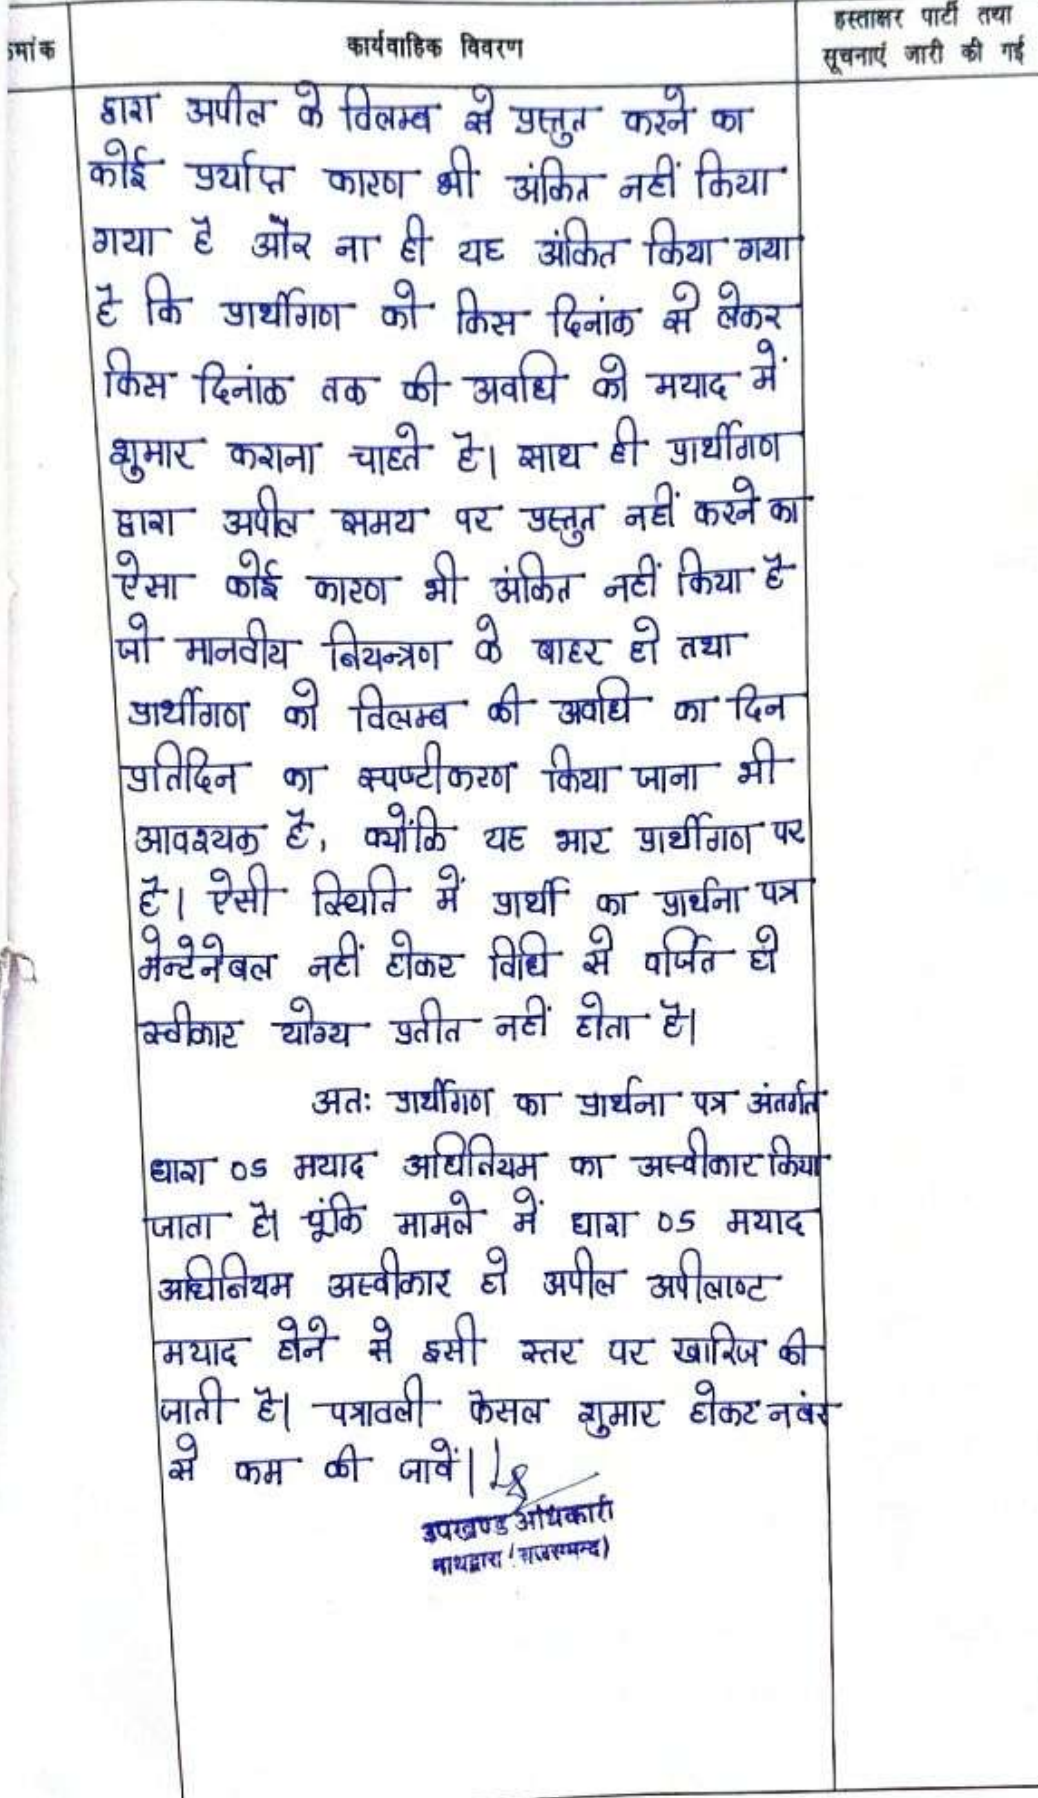 क्रमांक
कार्यवाहिक विवरण
हस्ताक्षर पार्टी तथा
सूचनाएं जारी की गई
द्वारा अपील के विलम्ब से प्रस्तुत करने का
कोई पर्याप्त कारण भी अंकित नहीं किया
गया है और ना ही यह अंकित किया गया
है कि प्रार्थीगण को किस दिनांक से लेकर
किस दिनांक तक की अवधि को मयाद में
शुमार कराना चाहते है। साथ ही प्रार्थीगण
द्वारा अपील समय पर प्रस्तुत नहीं करने का
ऐसा कोई कारण भी अंकित नहीं किया है
जो मानवीय नियन्त्रण के बाहर हो तथा
प्रार्थीगण को विलम्ब की अवधि का दिन
प्रतिदिन का स्पष्टीकरण किया जाना भी
आवश्यक है, क्योंकि यह भार प्रार्थीगण पर
है। ऐसी स्थिति में प्रार्थी का प्रार्थना पत्र
मेन्टेनेबल नहीं होकर विधि से वर्जित हो
स्वीकार योग्य प्रतीत नहीं होता है।
अतः प्रार्थीगण का प्रार्थना पत्र अंतर्गत
धारा 05 मयाद अधिनियम का अस्वीकार किया
जाता है। चूंकि मामले में धारा 05 मयाद
अधिनियम अस्वीकार हो अपील अपीलाण्ट
मयाद होने से इसी स्तर पर खारिज की
जाती है। पत्रावली फेसल शुमार होकर नबंर
से कम की जावें।
उपखण्ड अधिकारी
नाथद्वारा (राजसमन्द)